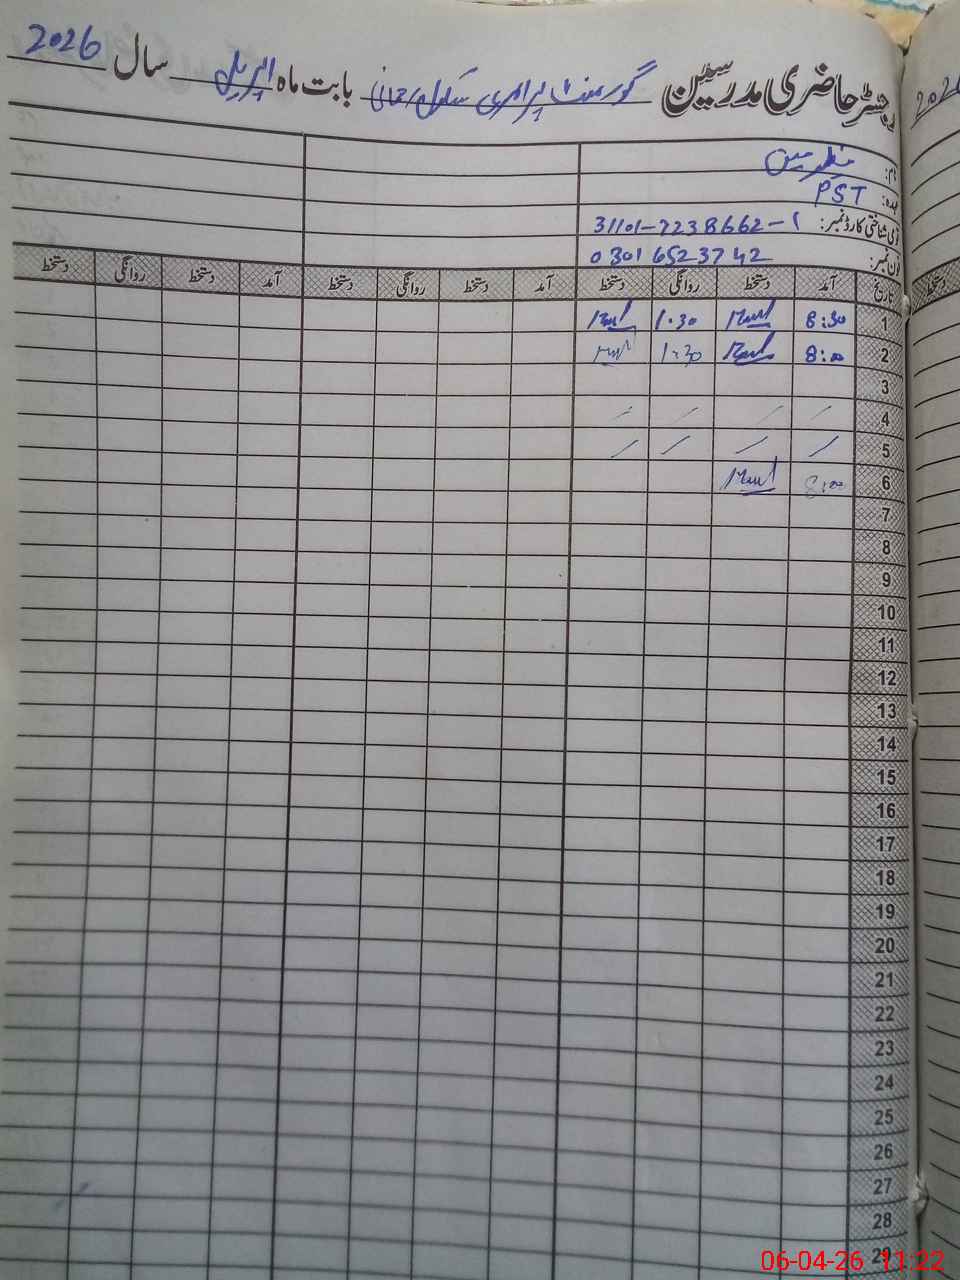 رجسٹر حاضری مدرسین گورنمنٹ پرائمری سکول بابت ماہ اپریل سال 2026
نام:
عہدہ: PST
قومی شناختی کارڈ نمبر: 31101-7238662-1
فون نمبر: 0301 6523742
تاریخ آمد دستخط روانگی دستخط آمد دستخط روانگی دستخط آمد دستخط روانگی دستخط
1 8:30 1:30
2 8:00 1:30
3
4
5
6 8:00
7
8
9
10
11
12
13
14
15
16
17
18
19
20
21
22
23
24
25
26
27
28
29
06-04-26 11:22